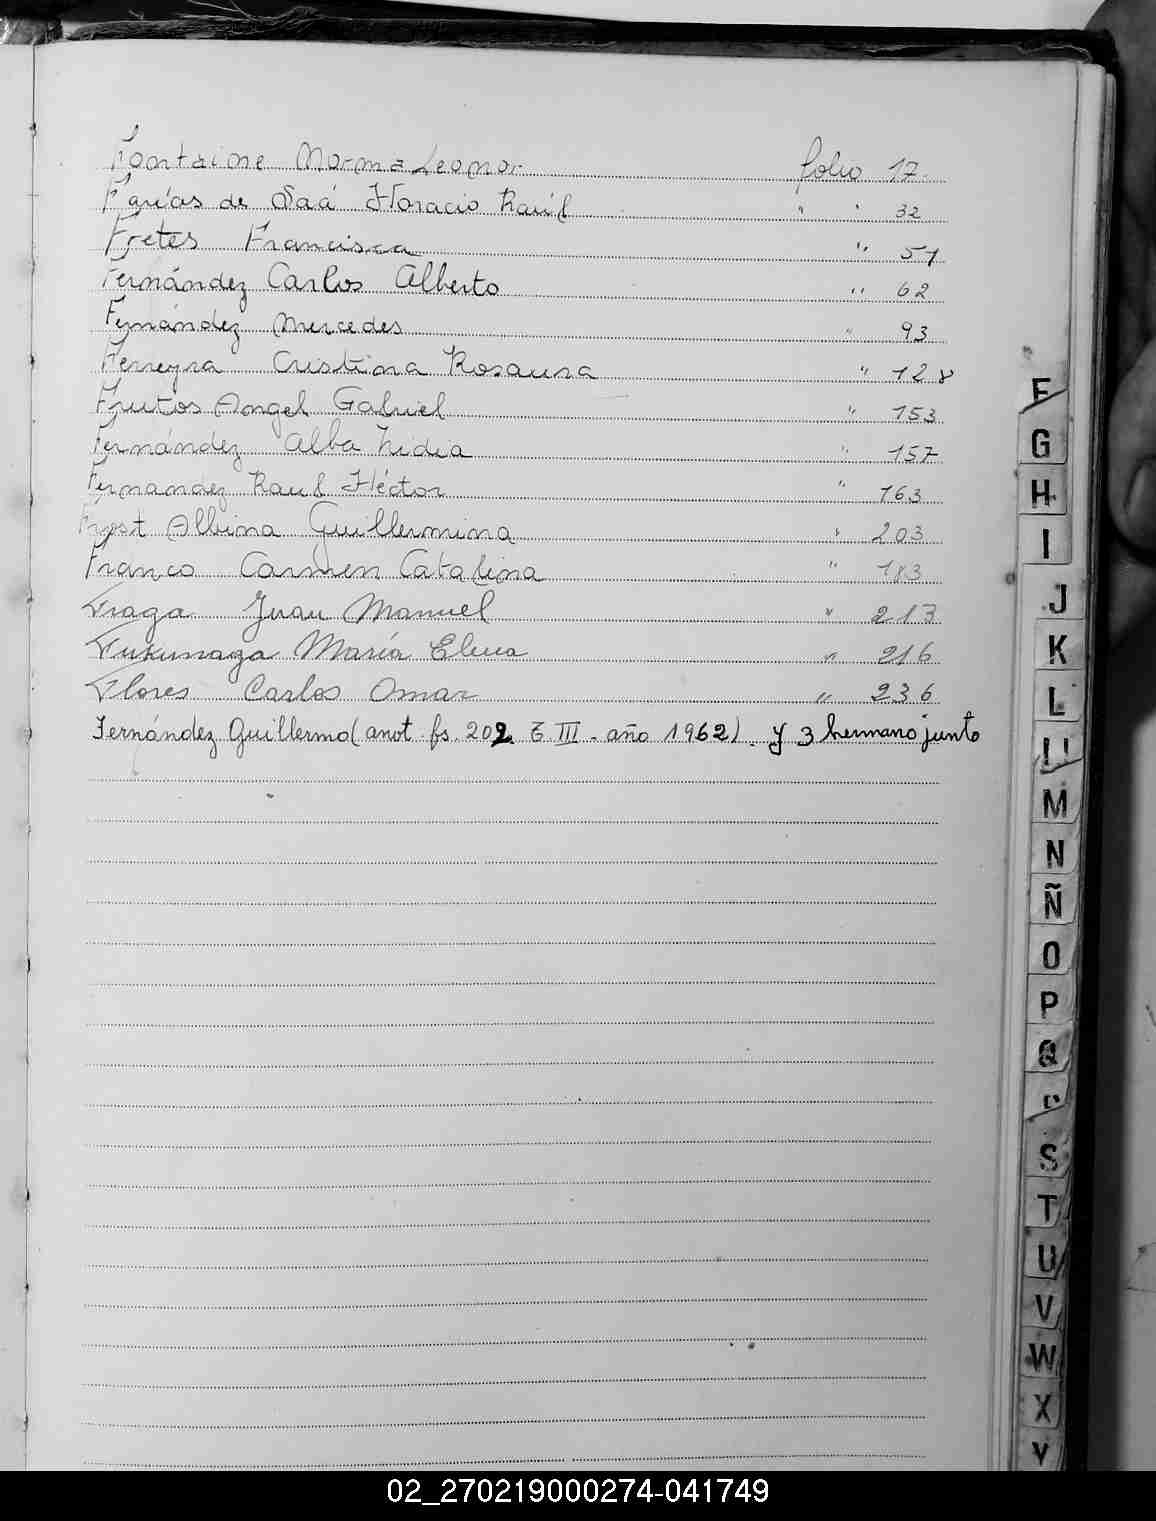 Fontaine Norma Leonor folio 17.
Farías de Saá Horacio Raúl " " 32
Fretes Francisca " 51
Fernández Carlos Alberto " 62
Fernández Mercedes " 93
Ferreyra Cristina Rosaura " 128
Frutos Angel Gabriel " 153
Fernández Alba Nidia " 157
Fernandez Raul Héctor " 163
Frost Albina Guillermina " 203
Franco Carmen Catalina " 183
Fraga Juan Manuel " 213
Fukunaga María Elena " 216
Flores Carlos Omar " 236
Fernández Guillermo (anot. fs. 202 T III - año 1962). y 3 hermano junto
F
G
H
I
J
K
L
M
N
Ñ
O
P
Q
S
T
U
V
W
X
Y
02_270219000274-041749